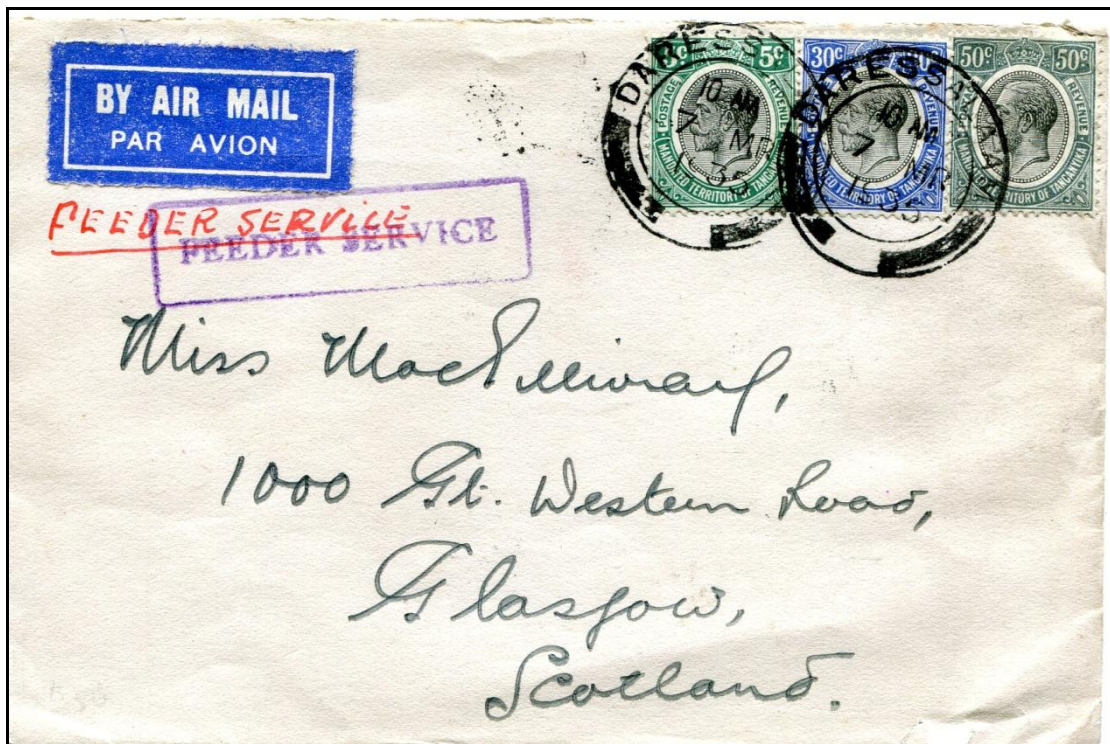 BY AIR MAIL
PAR AVION
FEEDER SERVICE
FEEDER SERVICE
5c
POSTAGE REVENUE
MANDATED TERRITORY OF TANGANYIKA
30c
MANDATED TERRITORY OF TANGANYIKA
50c 50c
REVENUE
MANDATED TERRITORY OF TANGANYIKA
DARESSALAAM
10 AM
7 MR
35
DARESSALAAM
10 AM
7 MR
35
Miss
1000 Gt. Western Road,
Glasgow,
Scotland.